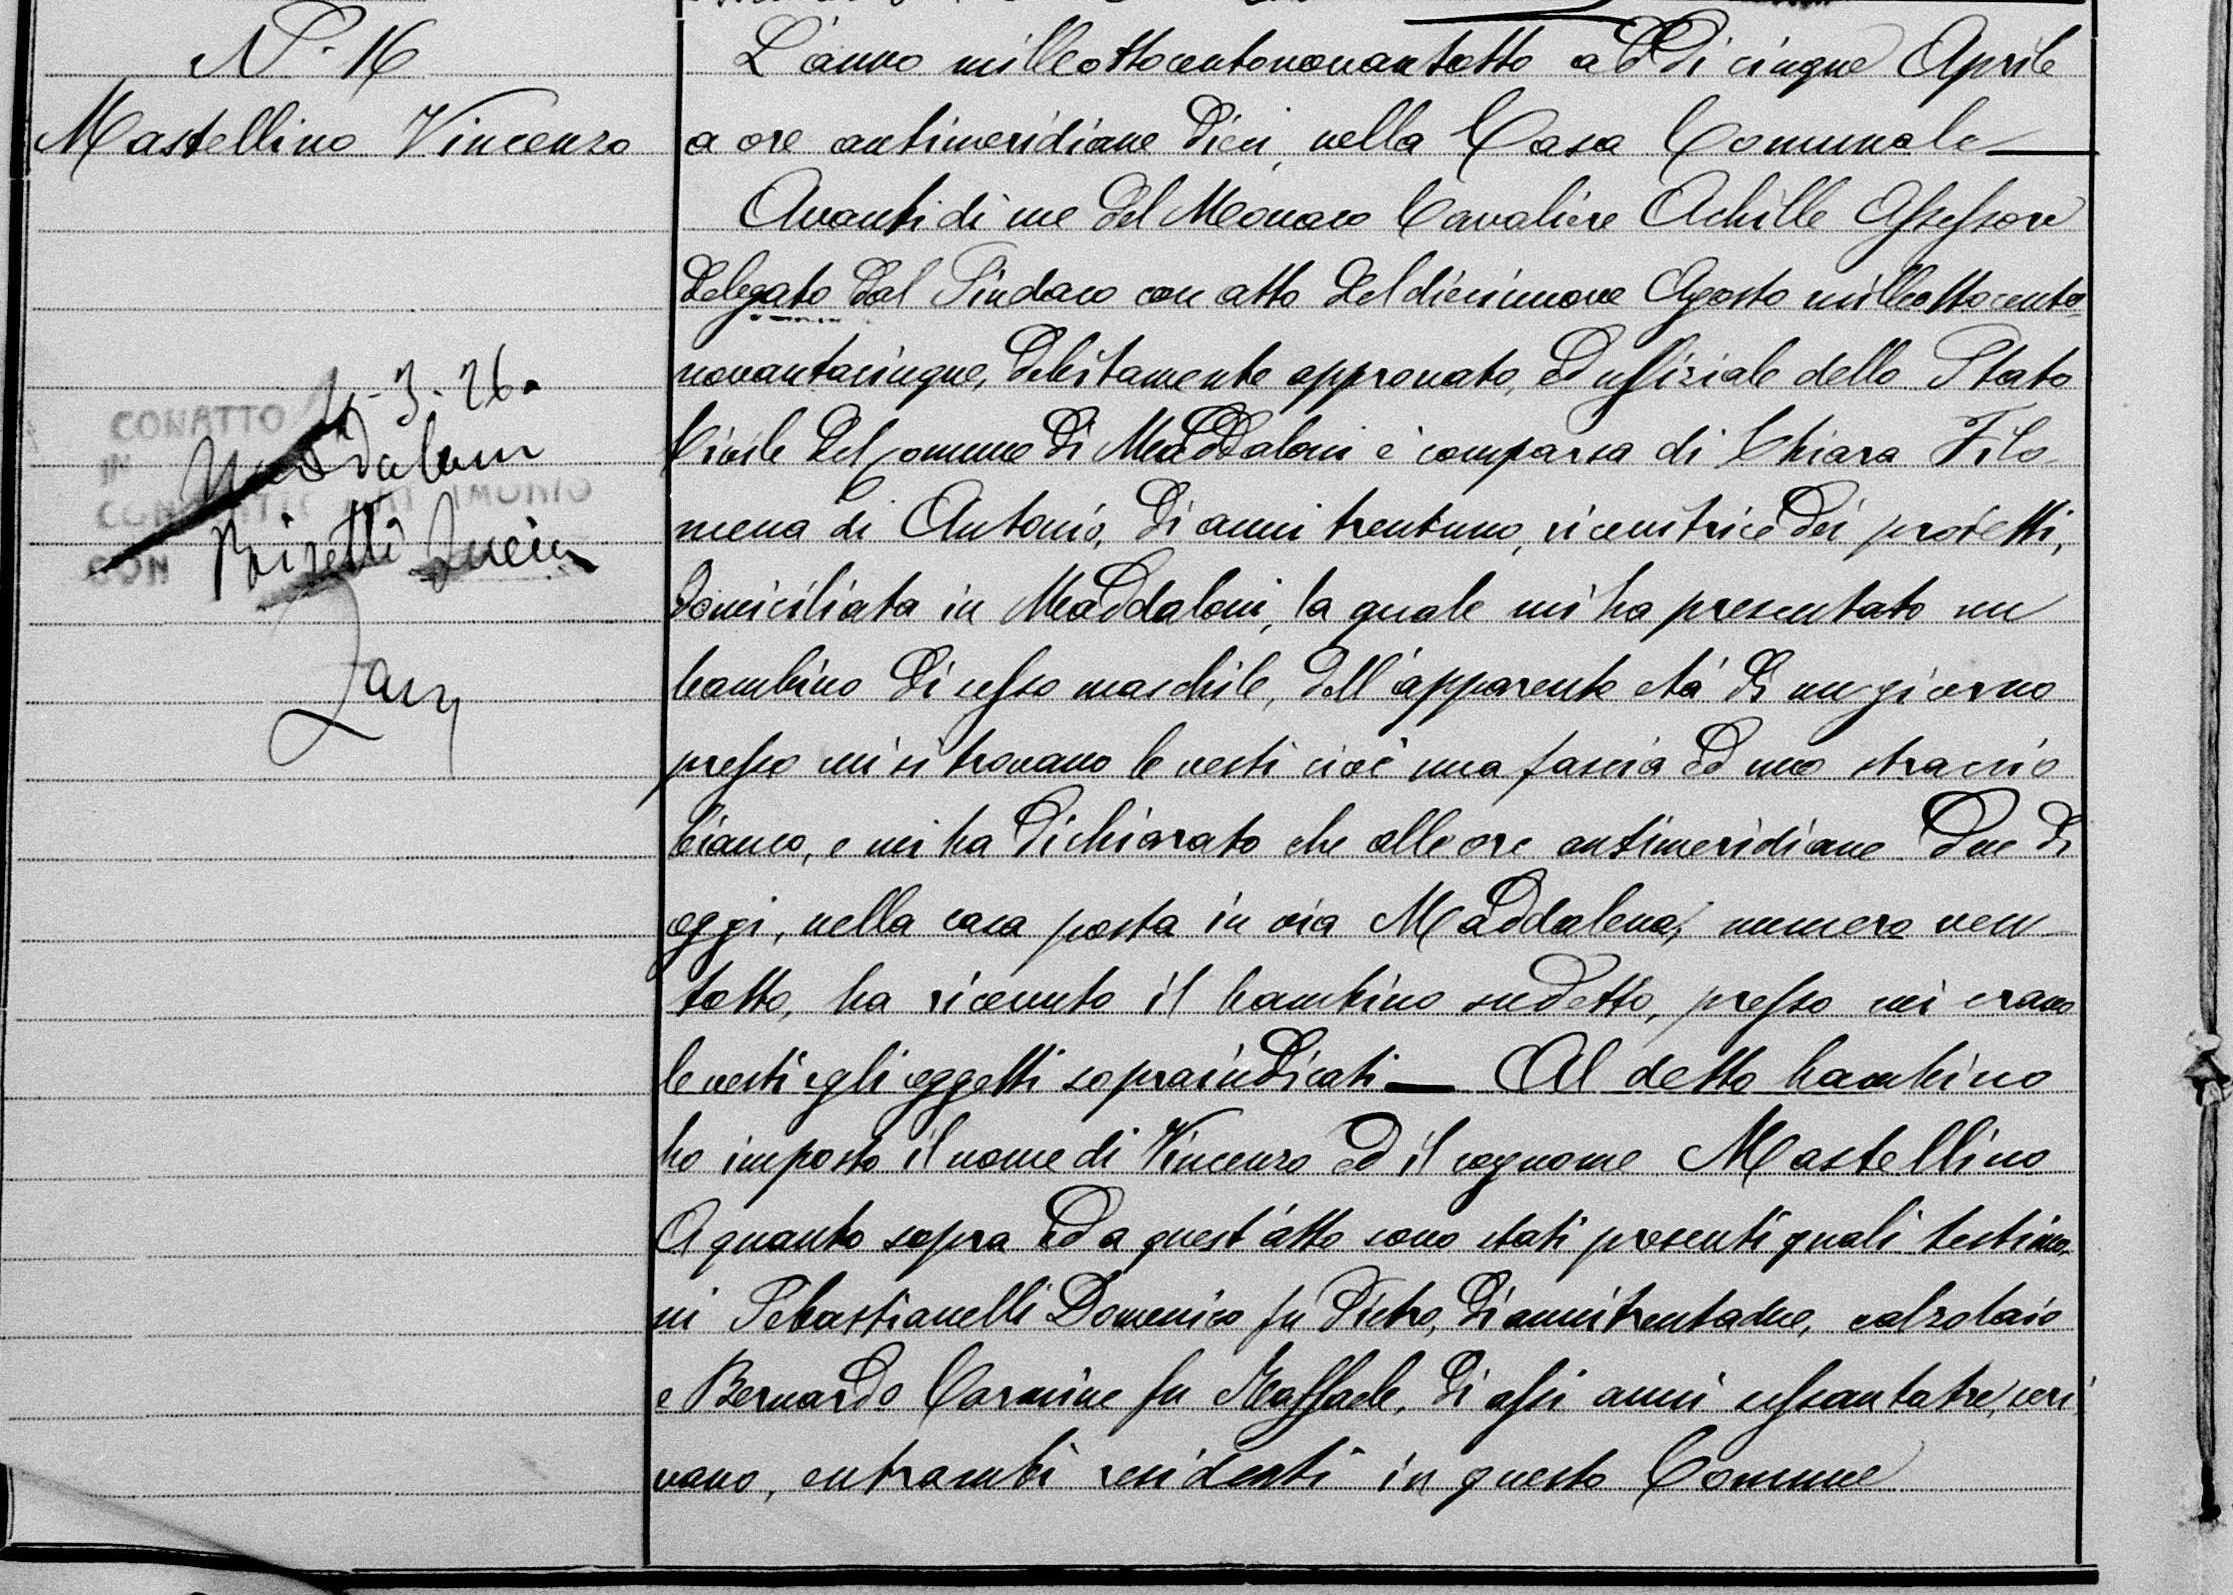 N° 16
Mastellino Vincenzo
CON ATTO 4-3-26
IN Maddaloni
CONTRATTO MATRIMONIO
CON Lucia
L'anno milleottocentonovantotto addì cinque Aprile
a ore antimeridiane dieci, nella Casa Comunale
Avanti di me Del Monaco Cavaliere Achille Assessore
delegato dal Sindaco con atto del diecinnove Agosto milleottocento=
novantacinque, debitamente approvato, ed uffiziale dello Stato
Civile del comune di Maddaloni è comparsa di Chiara Filo
mena di Antonio, di anni trentuno, ricevitrice dei proietti,
domiciliata in Maddaloni, la quale mi ha presentato un
bambino di sesso maschile, dell'apparente età di un giorno
presso cui si trovano le vesti cioè una fascia ed uno straccio
bianco, e mi ha dichiarato che alle ore antimeridiane due di
oggi, nella casa posta in via Maddalena, numero ven
totto, ha ricevuto il bambino sudetto, presso cui erano
le vesti e gli oggetti sopraindicati — Al detto bambino
ho imposto il nome di Vincenzo ed il cognome Mastellino
A quanto sopra ed a quest'atto sono stati presenti quali testimo,
ni Sebastianelli Domenico fu Pietro, di anni trentadue, calzolaio
e Bernardo Carmine fu Raffaele, di assi anni sessantatre, scri
vano, entrambi residenti in questo Comune